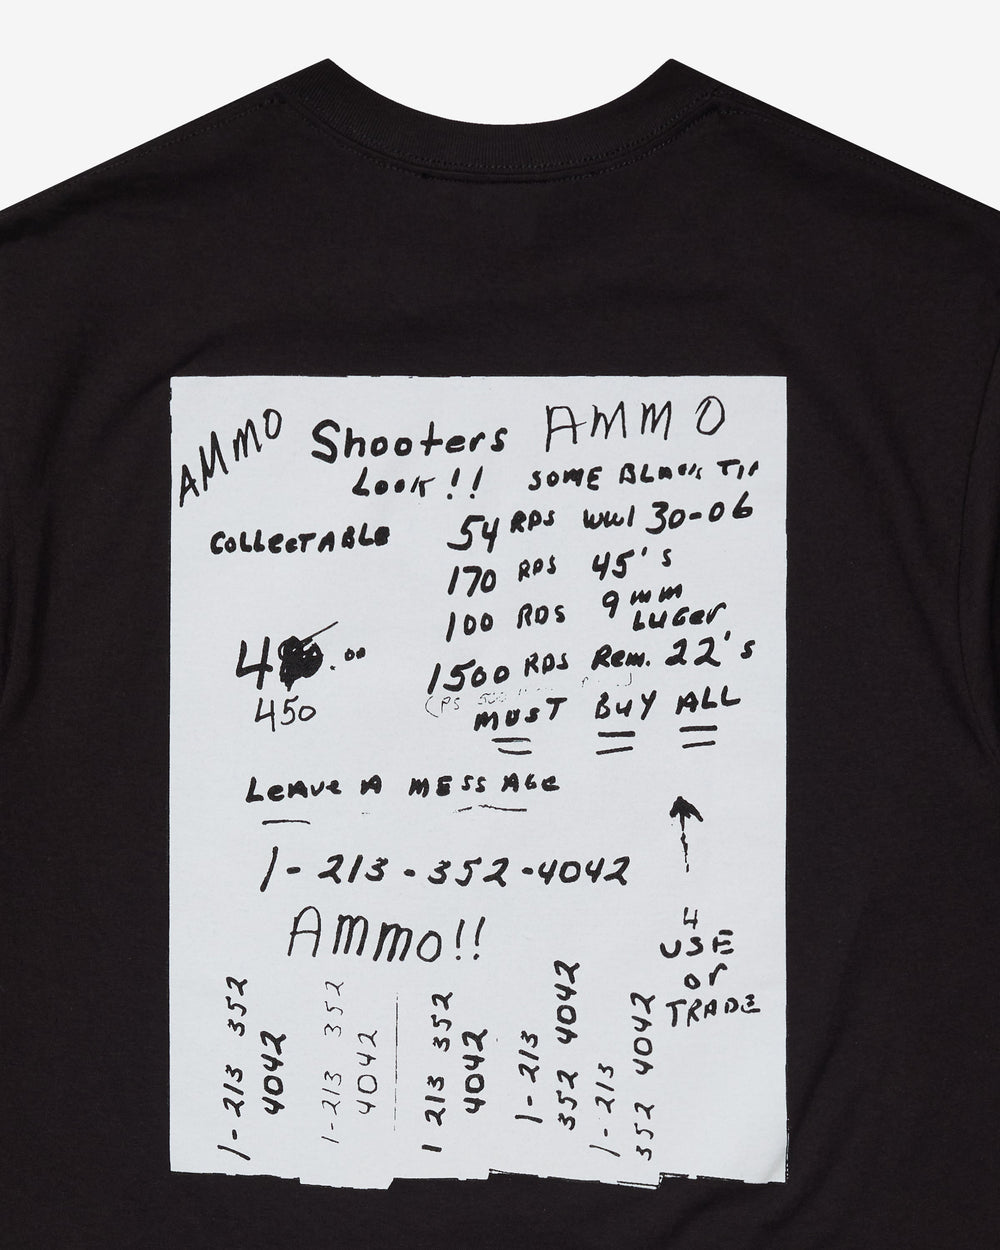 AMMO Shooters AMMO
Look!! SOME BLACK TIP
COLLECTABLE 54 RDS WWI 30-06
170 RDS 45's
100 RDS 9mm
LUGER
4 .00 1500 RDS Rem. 22's
450 MUST BUY ALL
LEAVE A MESSAGE
1-213-352-4042
AMMO!!
4
USE
or
TRADE
1-213 352
4042
1-213 352
4042
1 213 352
4042
1-213
352 4042
1-213
352 4042